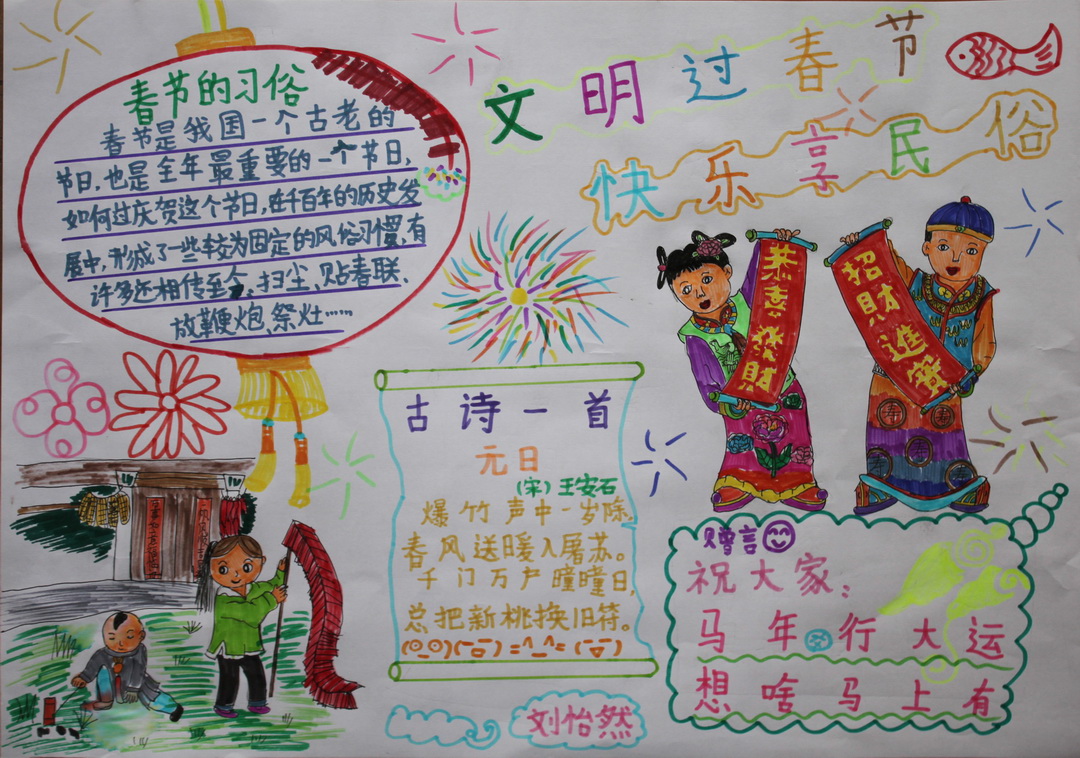 文明过春节
快乐享民俗
春节的习俗
春节是我国一个古老的
节日,也是全年最重要的一个节日,
如何过庆贺这个节日,在千百年的历史发
展中,形成了一些较为固定的风俗习惯,有
许多还相传至今。扫尘、贴春联、
放鞭炮、祭灶……
恭喜發财
招財進寶
古诗一首
元日
(宋)王安石
爆竹声中一岁除,
春风送暖入屠苏。
千门万户曈曈日,
总把新桃换旧符。
赠言
祝大家:
马年行大运
想啥马上有
刘怡然